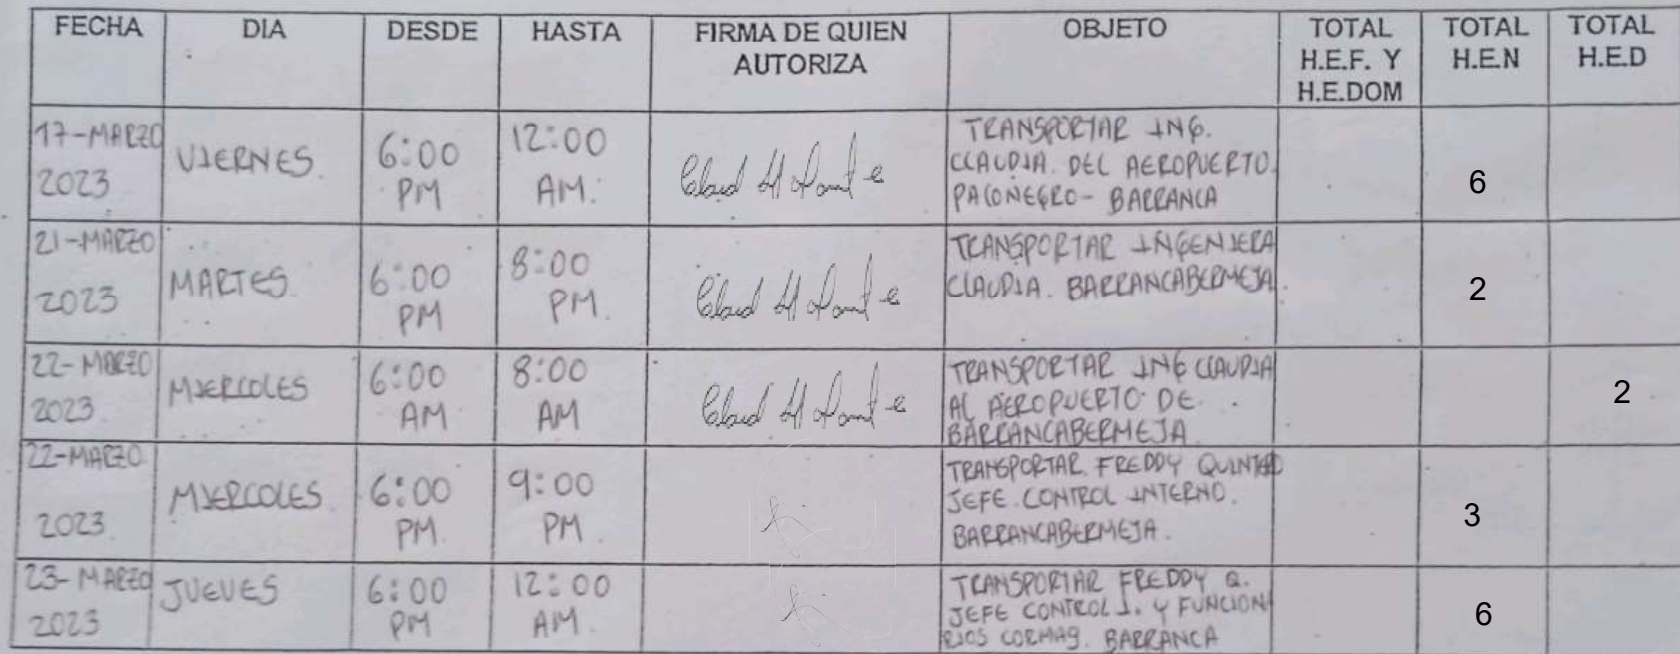 FECHA DIA DESDE HASTA FIRMA DE QUIEN AUTORIZA OBJETO TOTAL H.E.F. Y H.E.DOM TOTAL H.E.N TOTAL H.E.D
17-MARZO
2023
VIERNES.
6:00
PM
12:00
AM.
TRANSPORTAR ING.
CLAUDIA. DEL AEROPUERTO.
PALONEGRO- BARRANCA
6
21-MARZO
2023
MARTES.
6:00
PM
8:00
PM.
TRANSPORTAR INGENIERA
CLAUDIA. BARRANCABERMEJA.
2
22-MARZO
2023
MIERCOLES
6:00
AM
8:00
AM
TRANSPORTAR ING CLAUDIA
AL AEROPUERTO DE.
BARRANCABERMEJA
2
22-MARZO
2023.
MIERCOLES.
6:00
PM.
9:00
PM
TRANSPORTAR. FREDDY QUINTERO
JEFE. CONTROL INTERNO.
BARRANCABERMEJA.
3
23-MARZO
2023
JUEVES
6:00
PM
12:00
AM.
TRANSPORTAR FREDDY Q.
JEFE CONTROL I. Y FUNCION
RIOS CORMAG. BARRANCA
6